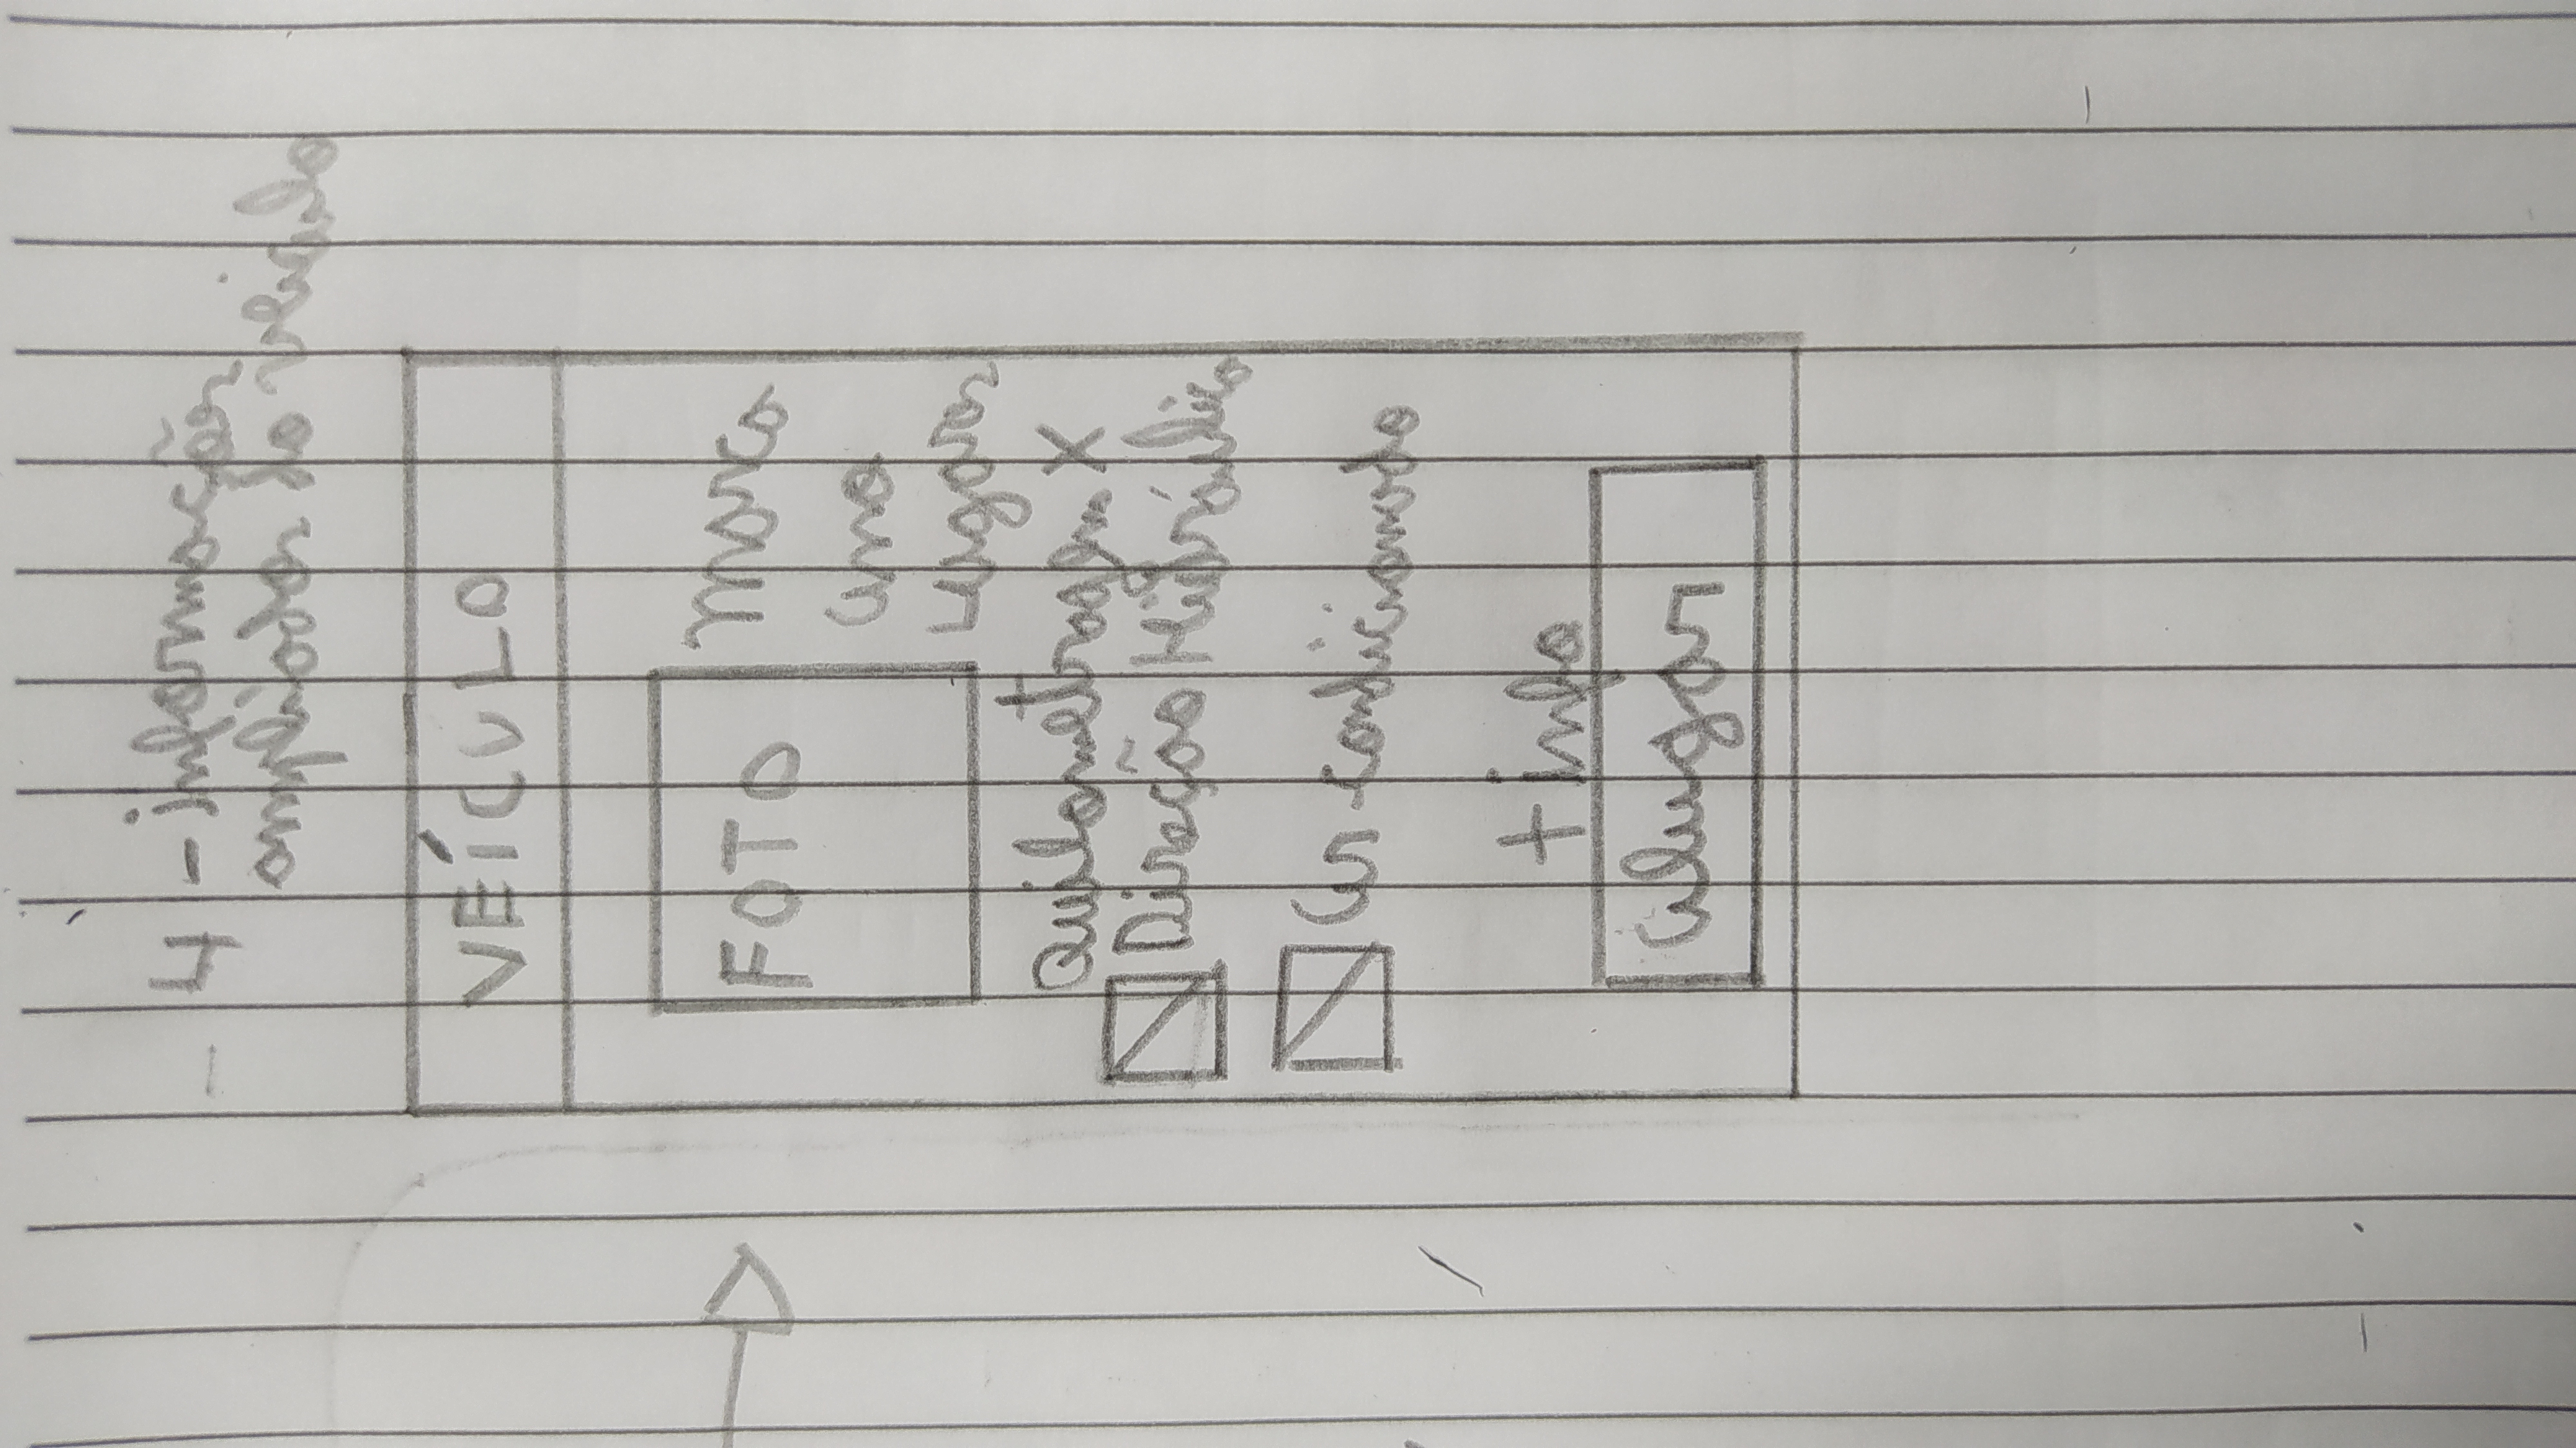 4 - informações
ampliadas do veiculo
VEÍCULO
FOTO
Marca
ano
Lugares
Quilometragem X
Direção Hidráulica
ar condicionado
+ info
alugar